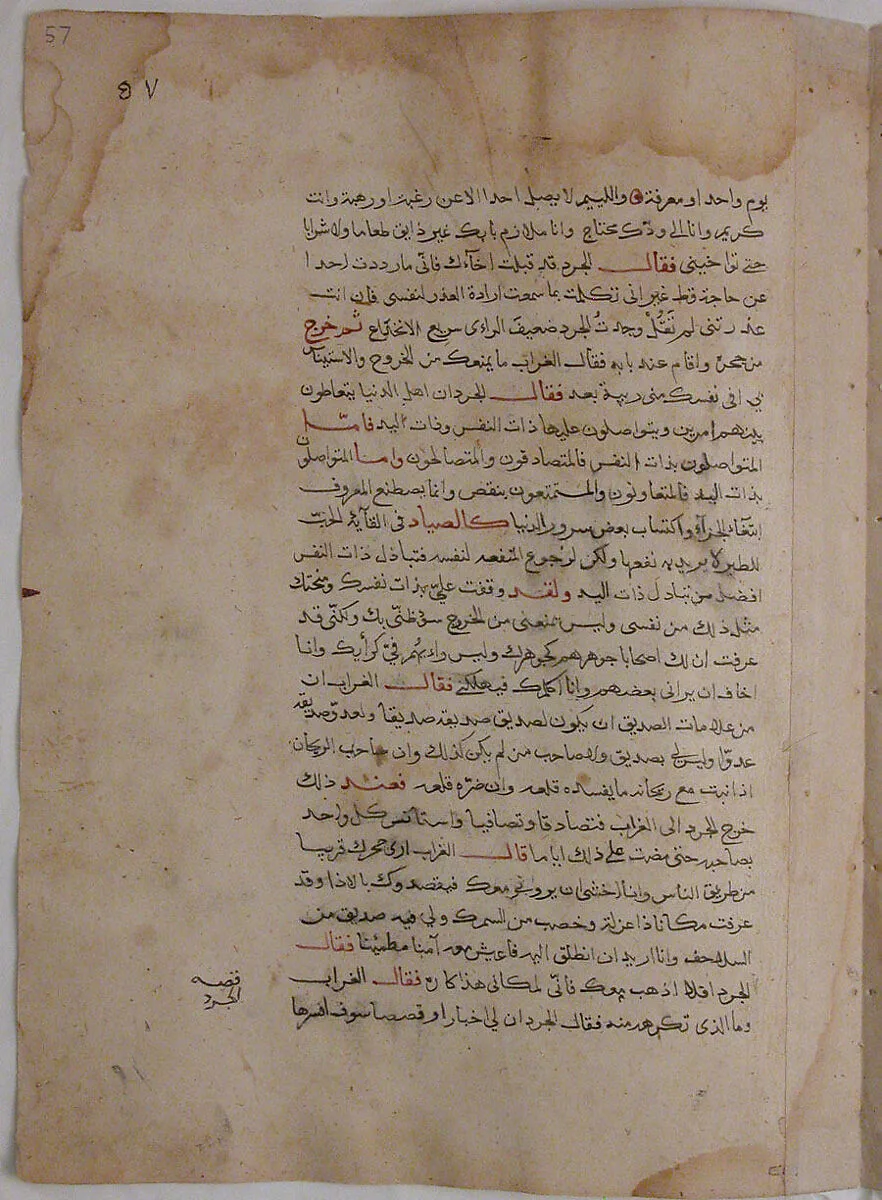 57
٥٧
يوم واحد او معرفة واللييم لا يصل احدا الا عن رغبة او رهبة وانت
كريم وانا الى ودّك محتاج وانا ملازم بابك غير ذايق طعاما ولا شرابا
حتى تواخيني فقال الجرد قد قبلت اخآءك فانّي ما رددت احدا
عن حاجة قط غير اني تكلمت بما سمعت ارادة العذر لنفسي فان انت
غدرتني لم تقل وجدت الجرد ضعيف الراءى سريع الانخداع ثم خرج
من جحره واقام عند بابه فقال الغراب ما يمنعك من الخروج والاستيناس
بي افي نفسك مني ريبة بعد فقال الجرد ان اهل الدنيا يتعاطون
بينهم امرين ويتواصلون عليها ذات النفس وذات اليد فامّا
المتواصلون بذات النفس فالمتصادقون والمتصالحون واما المتواصلون
بذات اليد فالمتعاونون والمستمتعون ينقص وانما يصطنع المعروف
ابتغاء الجزآء واكتساب بعض سرور الدنيا كالصياد في القآيه الحبّ
للطير لا يريد به نفعها ولكن لرجوع المنفعه لنفسه فتباذل ذات النفس
افضل من تباذل ذات اليد ولقد وقفت على بذات نفسك ومنحتك
مثل ذلك من نفسى وليس يمنعنى من الخروج سو ظنّي بك ولكنّي قد
عرفت ان لك اصحابا جوهرهم كجوهرك وليس رايهم فيّ كرأيك وانا
اخاف ان يراني بعضهم وانا اكلمك فيهلكني فقال الغراب ان
من علامات الصديق ان يكون لصديق صديقه صديقا ولعدوّ صديقه
عدوّا وليس لي بصديق ولا صاحب من لم يكن كذلك وان صاحب الريحان
اذا نبت مع ريحانه ما يفسده قلعه وان ضرّه قلعه فعند ذلك
خرج الجرد الى الغراب فتصادقا وتصافيا واستانس كل واحد
بصاحبه حتى مضت على ذلك اياما قال الغراب ارى جحرك قريبا
من طريق الناس وانا اخشى ان يروني معك فيقصدوك بالاذا وقد
عرفت مكانا ذا عزلة وخصب من السمك ولي فيه صديق من
السلاحف وانا اريد ان انطلق اليه فاعيش معه آمنا مطمئنا فقال
الجرد افلا اذهب معك فانّي لمكاني هذا كاره فقال الغراب
وما الذي تكرهه منه فقال الجرد ان لي اخبارا وقصصا سوف افسرها
قصه
الجرد